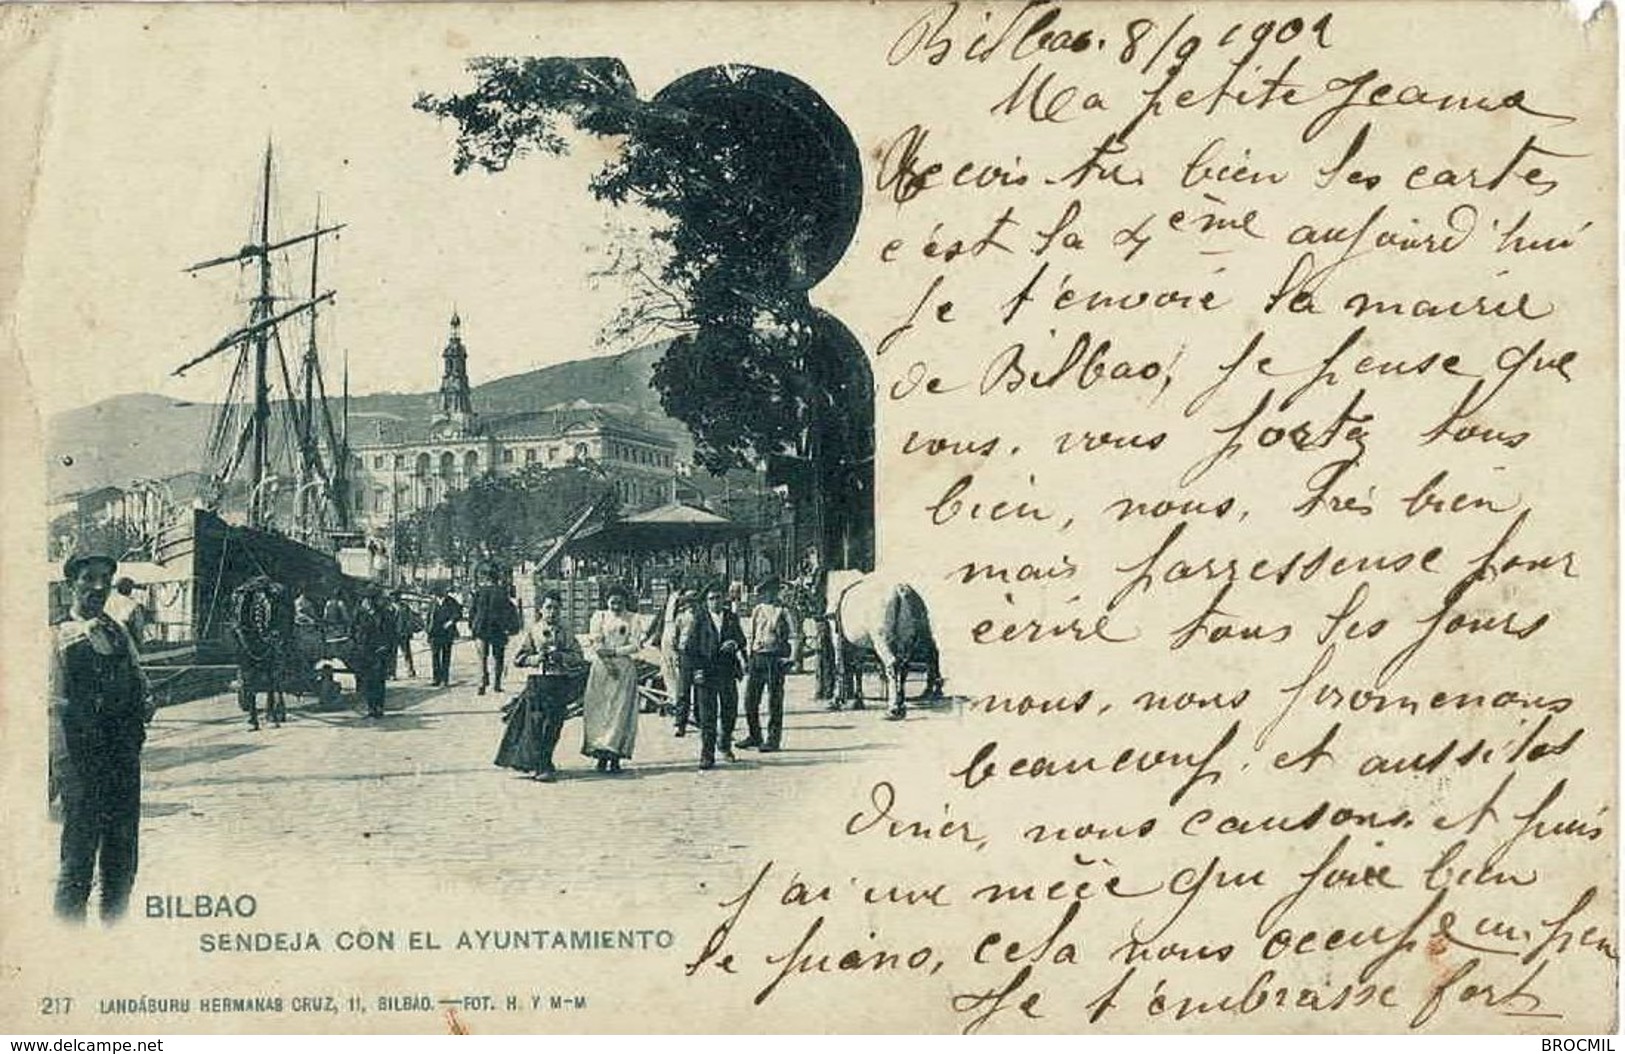 Bilbao. 8/9 1901
Ma petite Jeanne
Recois tu bien les cartes
c'est la 4eme aujourd'hui
je t'envoie la mairie
de Bilbao, je pense que
vous, vous portez tous
bien, nous, très bien,
mais parressense pour
écrire tous les jours
nous, nous promenons
beaucoup, et aussitos
diner, nous causons et puis
j'ai une nièce qui joue bien
le piano, cela nous occupe un peu
Je t'embrasse fort
BILBAO
SENDEJA CON EL AYUNTAMIENTO
217 LANDÁBURU HERMANAS CRUZ, 11, BILBAO.—FOT. H. Y M-M
www.delcampe.net
BROCMIL